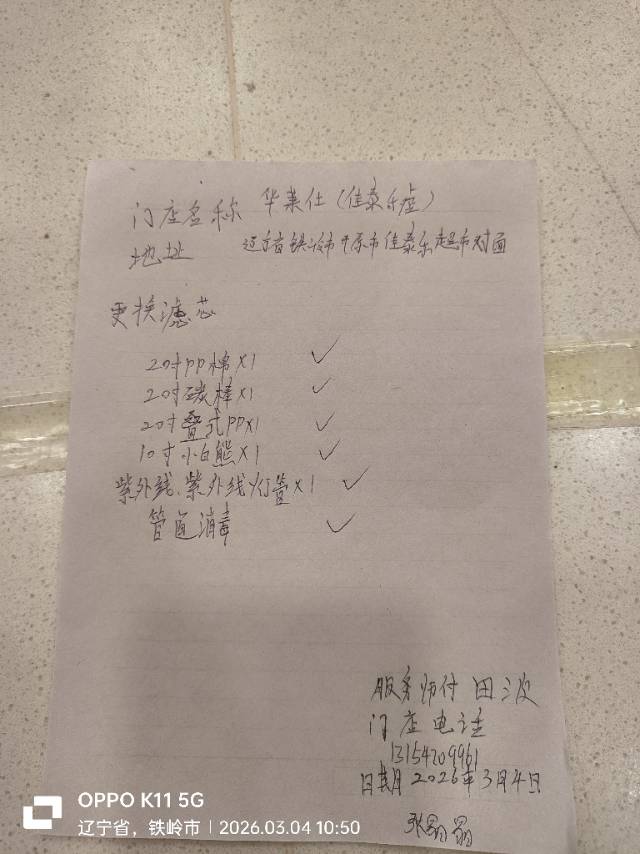 门店名称 华莱仕(佳泰乐店)
地址 辽宁省铁岭市开原市佳泰乐超市对面
更换滤芯
20寸PP棉X1 ✓
20寸碳棒X1 ✓
20寸叠式PPX1 ✓
10寸小白熊X1 ✓
紫外线、紫外线灯管X1 ✓
管道消毒 ✓
服务师付 田波
门店电话
13154209961
日期 2026年3月4日
OPPO K11 5G
辽宁省，铁岭市 | 2026.03.04 10:50